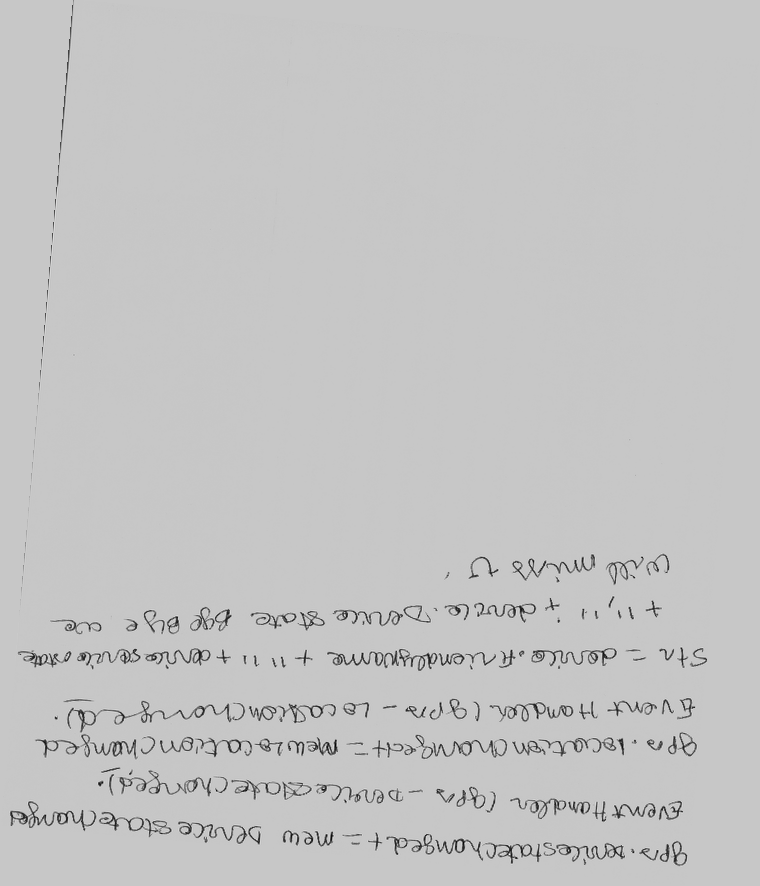 gps.Devicestatechanged += new Devicestatechanged
EventHandler (gps - Devicestatechanged).
gps.locationchanged += newlocationchanged
Event Handler (gps - locationchanged).
Str = device.friendlyname + " " + device servicestate
+ " , " + device. Device state Bye Bye we
will miss U .